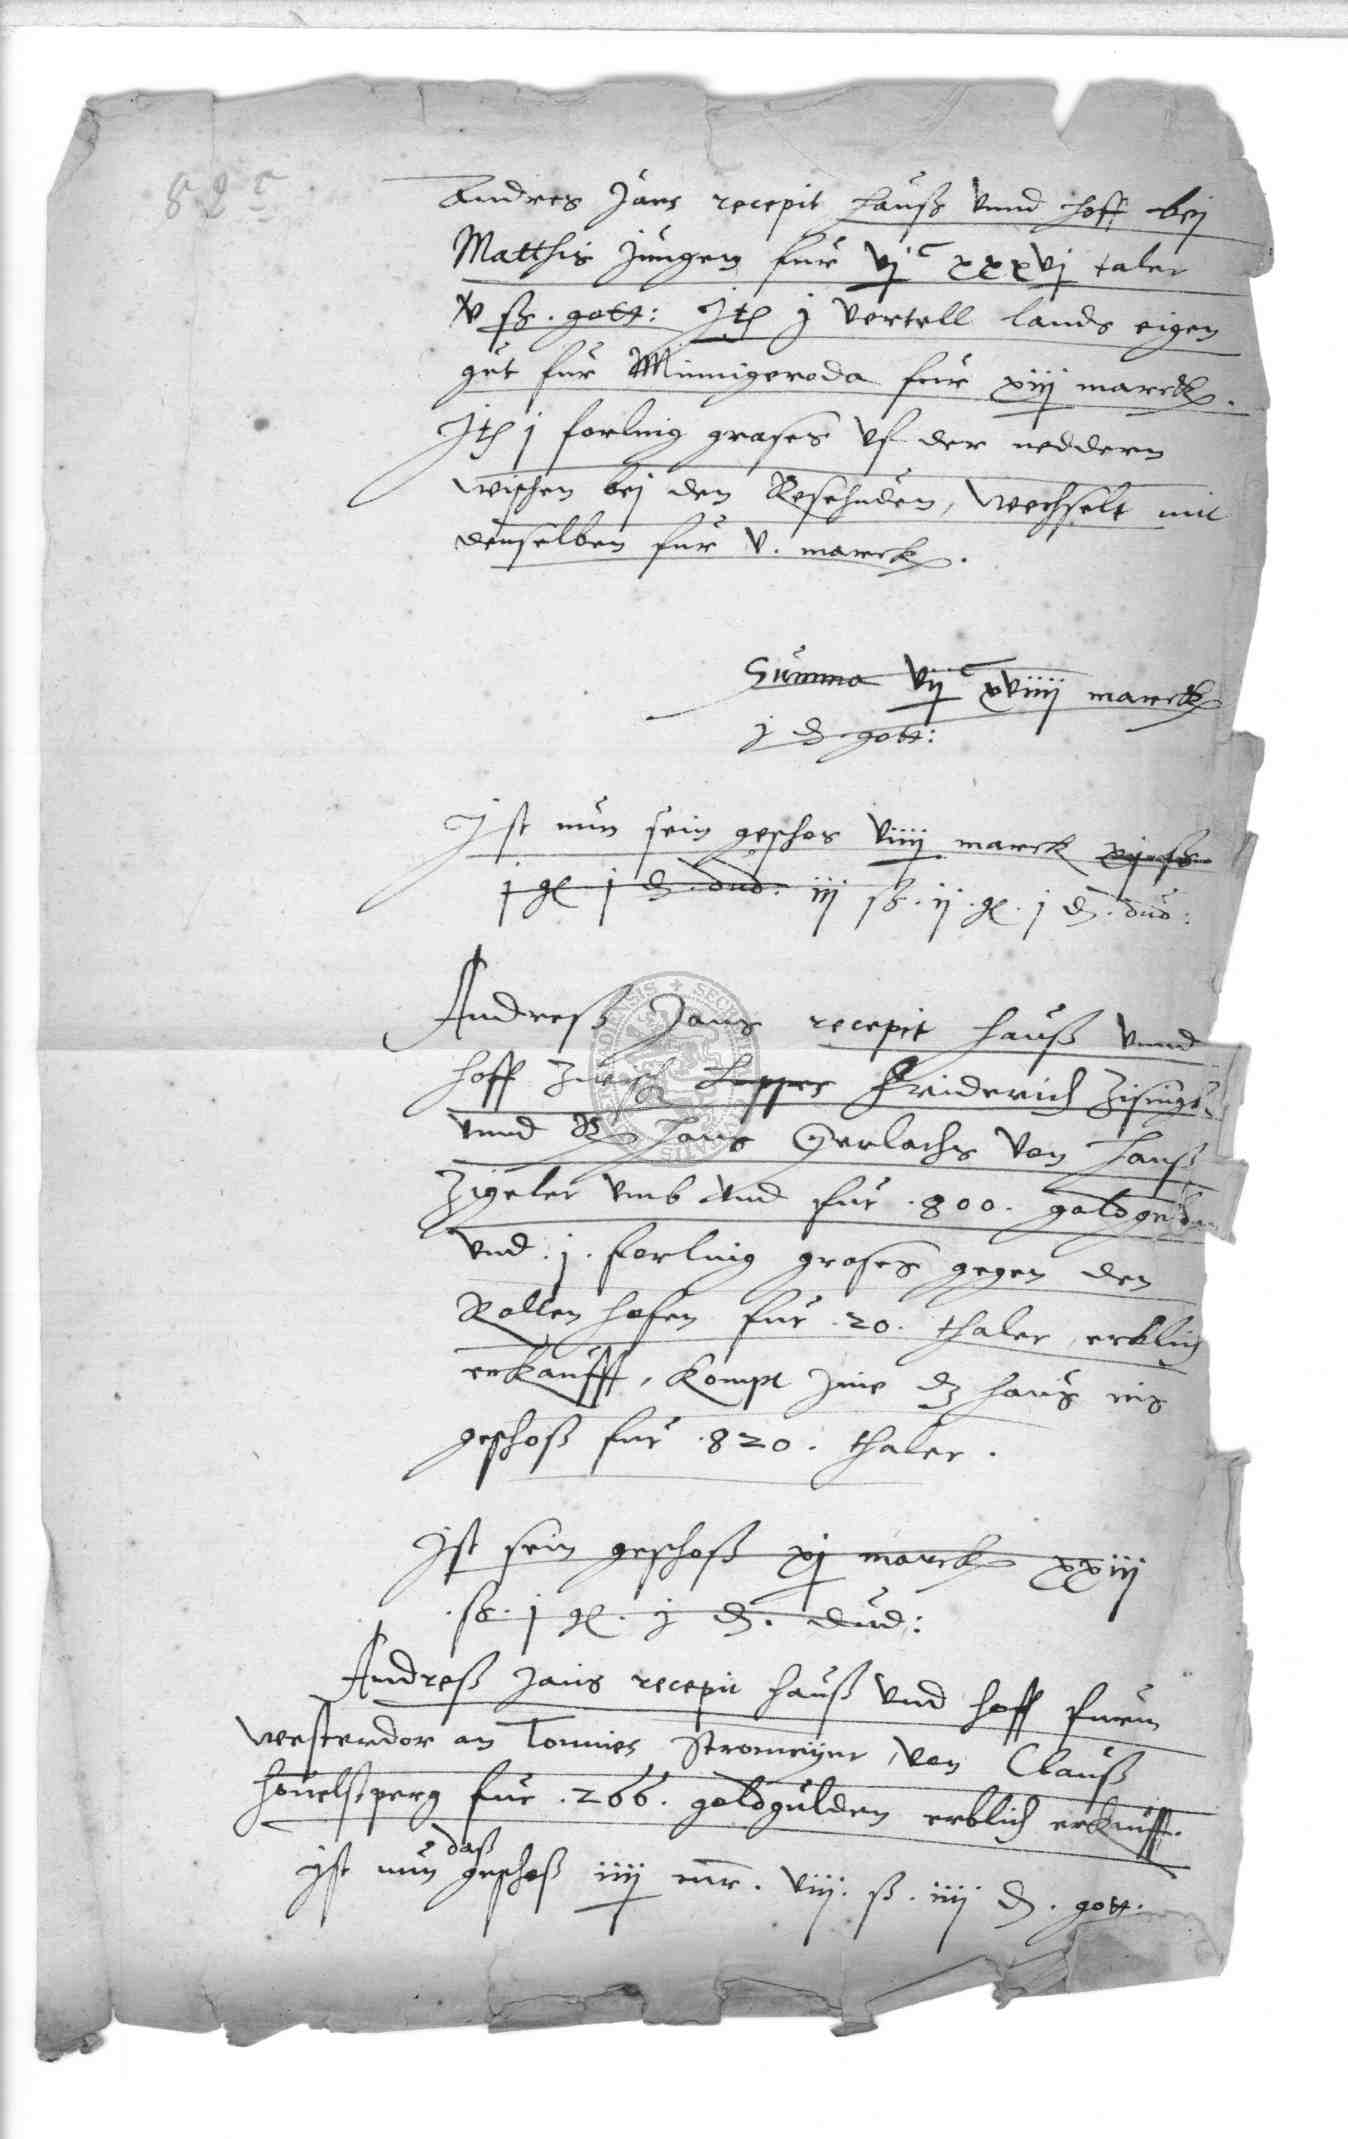 825
Andres Jans recepit hauß vnnd hoff bej
Matthis Jungen fur vjc xxxvj taler
v ß. gott: Jt j vertell lands eigen
gut fur Minnigeroda fur xiij marck.
Jt j forling grases vf der neddern
wischen bej den Reschuden, wechselt mit
denselben fur v. marck.
Summa vijc xviiij marck
j d. gott:
Jst nun sein geschos viiij marck xj ß
j g j d. dud: iij ß. ij. g. j d. dud:
Andreß Jans recepit hauß vnnd
hoff zwisch Friderich Zisings
vnnd Hans Gerlachs von Hanß
Zigeler vmb vnd fur .800. goldgulden
vnd .j. forling grases gegen den
Rollen hofen fur .20. thaler, erblich
erkaufft, kompt jme dz haus ins
geschoß fur .820. thaler.
Jst sein geschoß xj marck xxiij
.ß. j g. j d. dud:
Andreß Jans recepit hauß vnd hoff furm
westerdor an Tonnies Stromeyer, von Clauß
Houelsperg fur .266. goldgulden erblich erkaufft.
Jst nun daß geschoß iiij mr. viij. ß. iiij d. gott.
SECRET